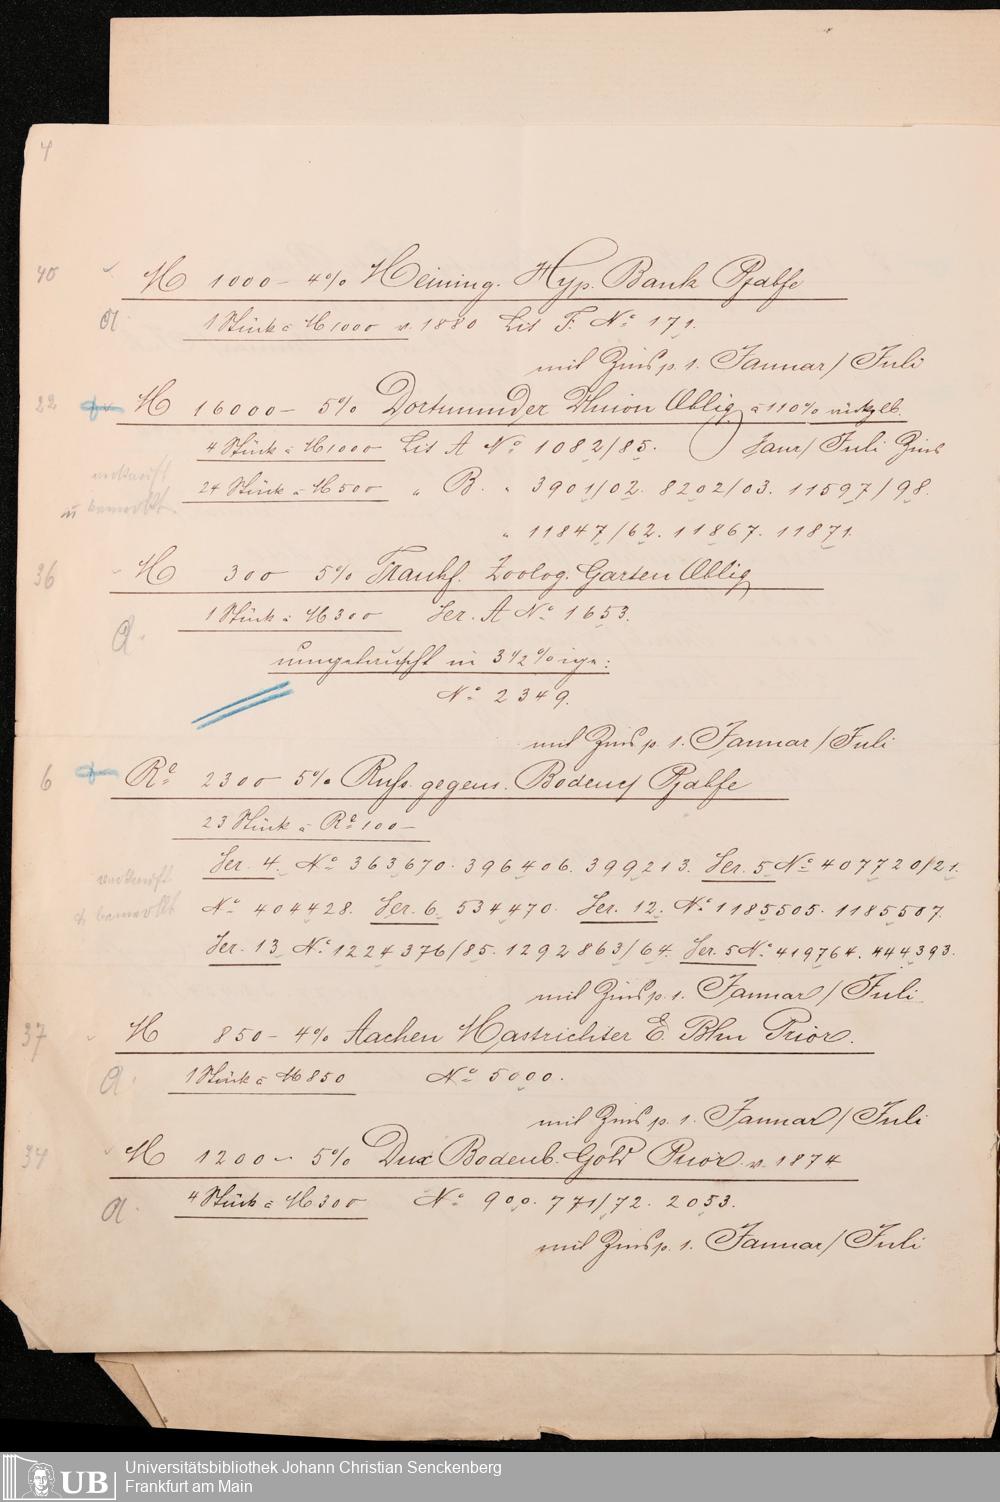 4
40 M 1000 – 4% Meining. Hyp. Bank Pfdbfe
a. 1 Stück à M 1000 v. 1880 Lit F. No 171.
mit Zins p. 1. Januar / Juli
22 M 16000 – 5% Dortmunder Union Oblig à 110% rückzlb.
4 Stück à M 1000 Lit A No 1082/85. Janr / Juli Zins
verkauft
24 Stück à M 500 " B. " 3901/02. 8202/03. 11597/98.
u bemerkt.
" 11847/62. 11867. 11871.
36 M 300 5% Frankf. Zoolog. Garten Oblig
1 Stück à M 300 Ser. A No 1653.
a.
umgetauscht in 3 1/2 % ige:
No 2349.
mit Zins p. 1. Januar / Juli
6 Ro 2300 5% Russ. gegens. Bodencr Pfdbfe
23 Stück à Ro 100 –
Ser. 4. No 363670. 396406. 399213. Ser. 5 No 407720/21.
verkauft
No 404428. Ser. 6. 534470. Ser. 12. No 1185505. 1185507.
& bemerkt
Ser. 13 No 1224376/85. 1292863/64. Ser. 5 No 419764. 444393.
mit Zins p. 1. Januar / Juli
37 M 850 – 4% Aachen Mastrichter E. Bhn Prior.
a. 1 Stück à M 850 No 5000.
mit Zins p. 1. Januar / Juli
34 M 1200 – 5% Dux Bodenb. Gold Prior. v. 1874
a. 4 Stück à M 300 No 900. 771/72. 2053.
mit Zins p. 1. Januar / Juli
UB Universitätsbibliothek Johann Christian Senckenberg
Frankfurt am Main